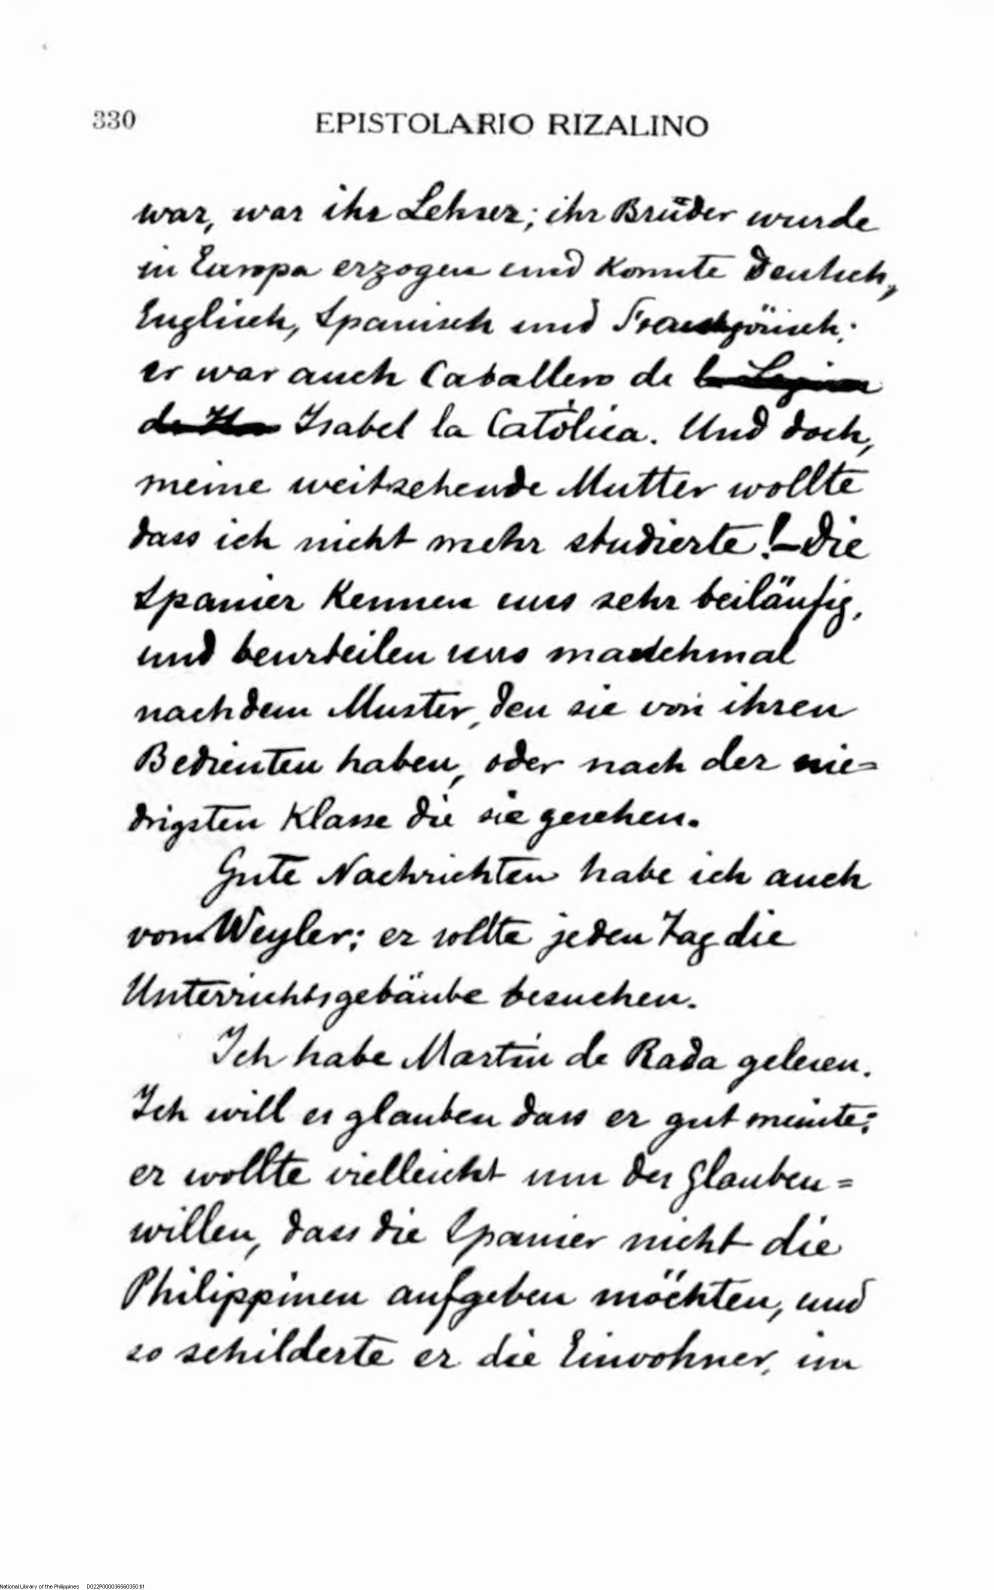 330
EPISTOLARIO RIZALINO
war, war ihr Lehrer; ihr Brüder wurde
in Europa erzogen und konnte Deutsch,
Englisch, Spanisch und Französisch;
er war auch Caballero de la Legion
de Isabel la Católica. Und doch,
meine weitsehende Mutter wollte
dass ich nicht mehr studierte! — Die
Spanier kennen uns sehr beiläufig,
und beurteilen uns manchmal
nach dem Muster, den sie von ihren
Bedienten haben, oder nach der nie=
drigsten Klasse die sie gesehen.
Gute Nachrichten habe ich auch
von Weyler; er sollte jeden Tag die
Unterrichtsgebäube besuchen.
Ich habe Martin de Rada gelesen.
Ich will es glauben dass er gut meinte;
er wollte vielleicht um des Glauben=
willen, dass die Spanier nicht die
Philippinen aufgeben möchten, und
so schilderte er die Einwohner, im
National Library of the Philippines